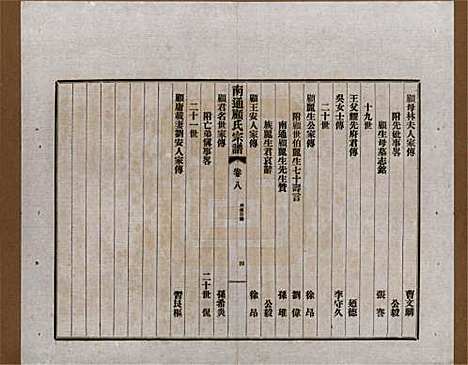 顧母林夫人家傳 曹文麟
附先妣事畧 公毅
顧生母墓志銘 張謇
十九世
王父耀先府君傳 迺德
吳女士傳 李守久
二十世
顧麗生公家傳 徐昂
附顧世伯麗生七十壽言 劉偉
南通顧麗生先生贊 孫堆
族麗生君哀辭 公毅
顧王安人家傳 徐昂
南通顧氏宗譜 卷八 四
顧君名世家傳 孫希炎
附亡弟佩事畧 二十世 侃
二十一世
顧庸載妻劉安人家傳 習艮樞